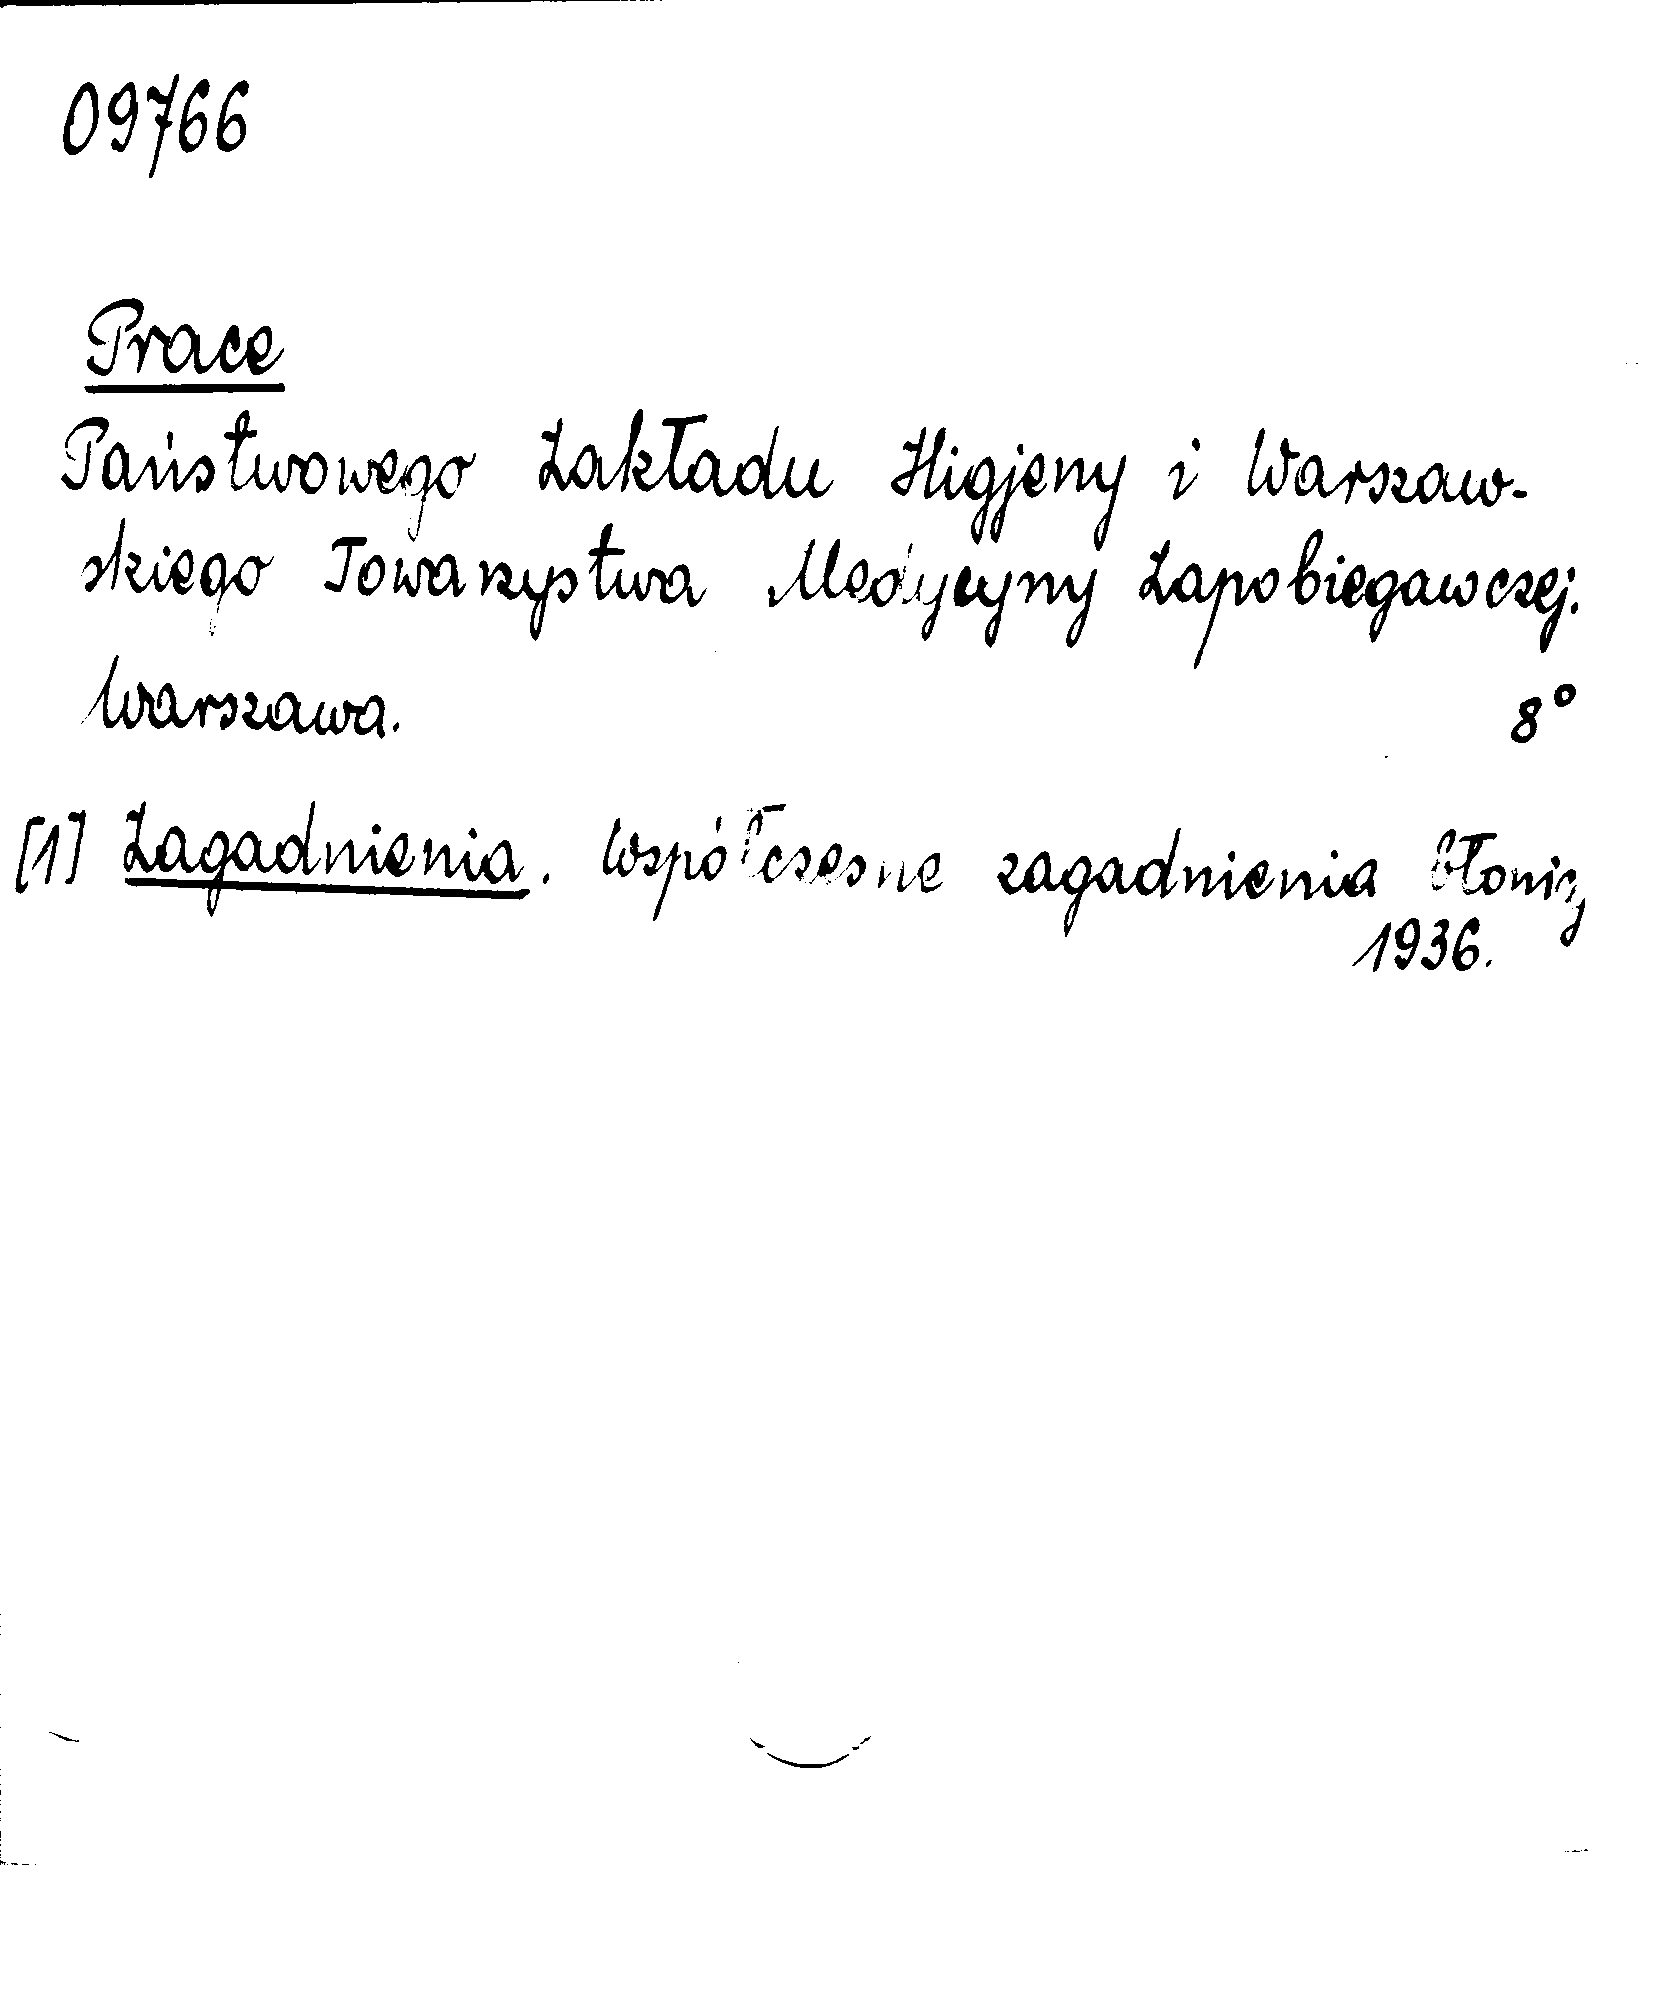 09766
Prace
Państwowego Zakładu Higjeny i Warszaw-
skiego Towarzystwa Medycyny Zapobiegawczej.
Warszawa. 8°
[1] Zagadnienia. Współczesne zagadnienia błonicy
1936.